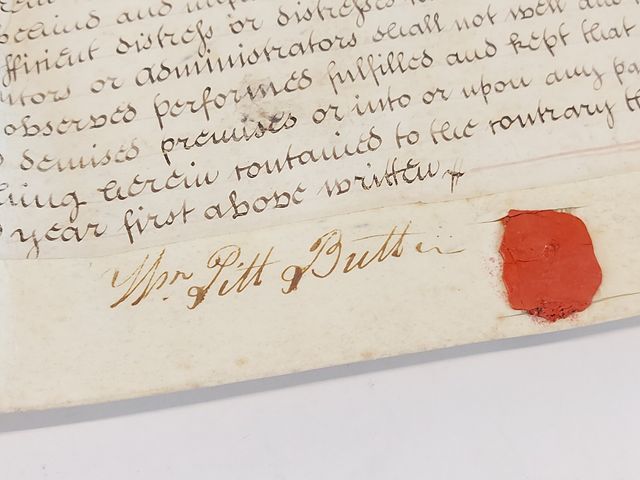 behind and
sufficient distress or distresses
or administrators shall not well and
observed performed fulfilled and kept that
demised premises or into or upon any
thing herein contained to the contrary
year first above written
Wm Pitt Butler